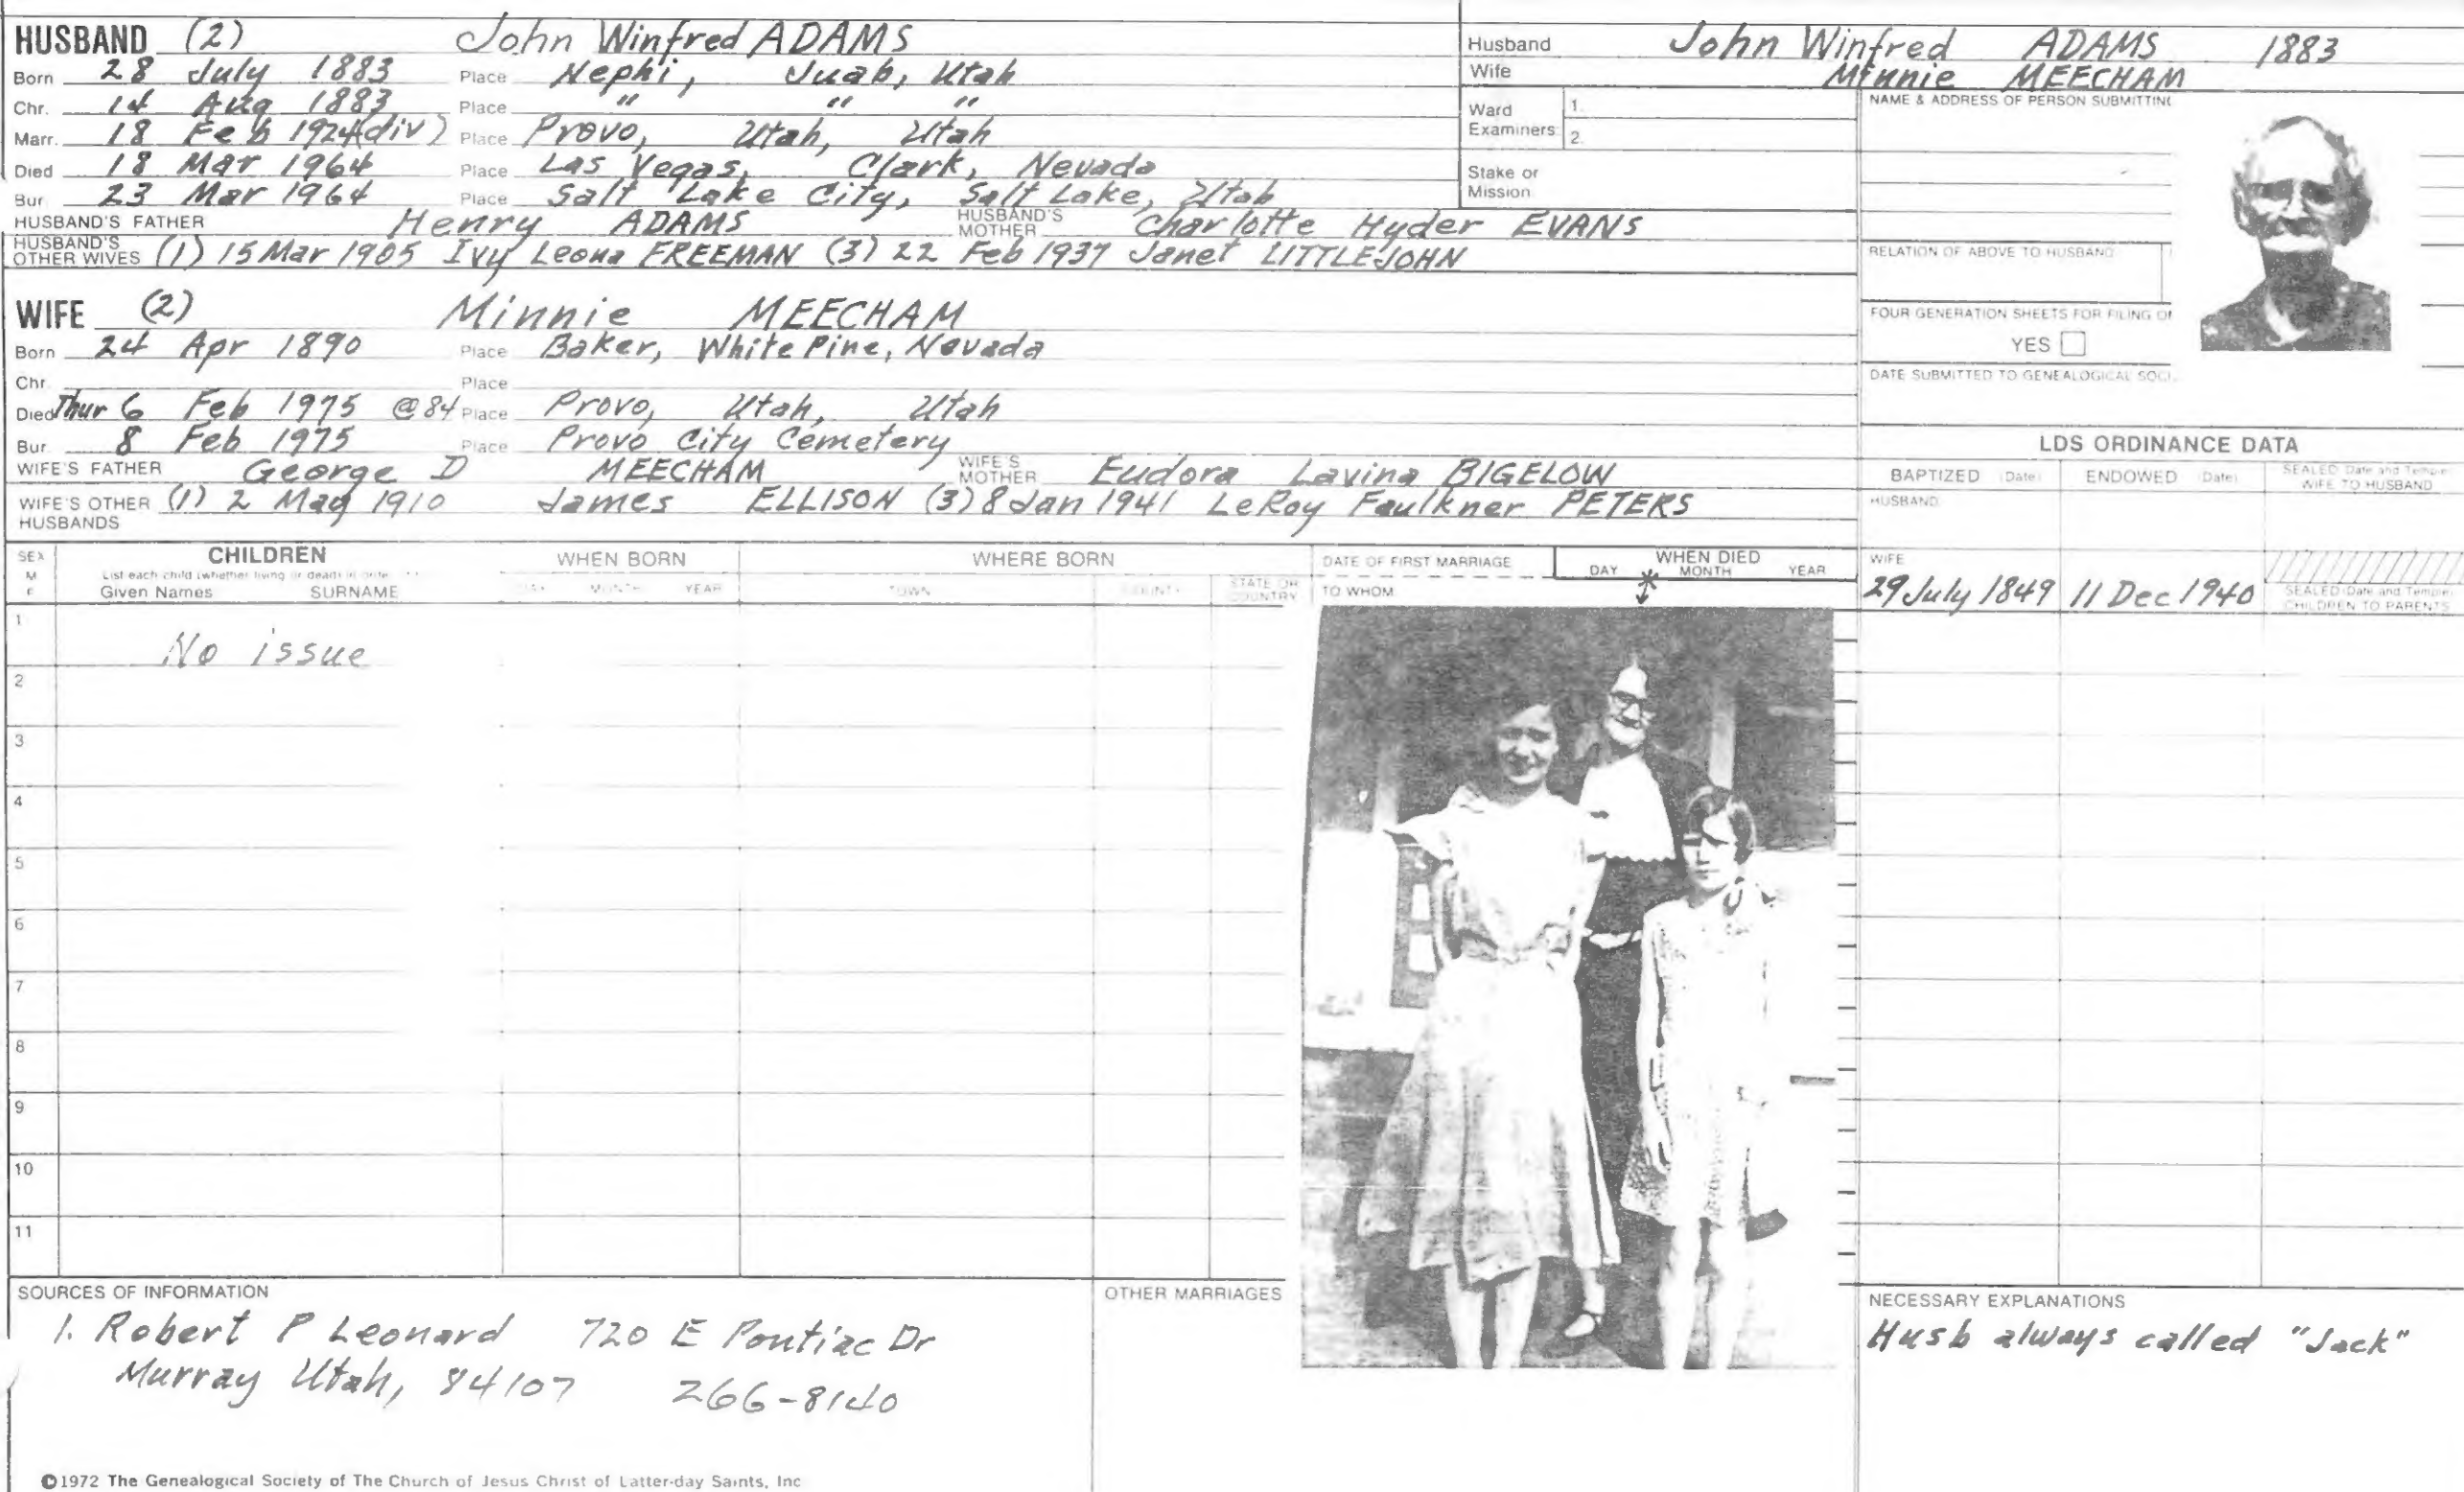 HUSBAND (2) John Winfred ADAMS
Born 28 July 1883 Place Nephi, Juab, Utah
Chr. 14 Aug 1883 Place " " "
Marr. 18 Feb 1924 (div) Place Provo, Utah, Utah
Died 18 Mar 1964 Place Las Vegas, Clark, Nevada
Bur 23 Mar 1964 Place Salt Lake City, Salt Lake, Utah
HUSBAND'S FATHER Henry ADAMS HUSBAND'S MOTHER Charlotte Hyder EVANS
HUSBAND'S OTHER WIVES (1) 15 Mar 1905 Ivy Leona FREEMAN (3) 22 Feb 1937 Janet LITTLEJOHN
WIFE (2) Minnie MEECHAM
Born 24 Apr 1890 Place Baker, White Pine, Nevada
Chr. Place
Died Thur 6 Feb 1975 @84 Place Provo, Utah, Utah
Bur. 8 Feb 1975 Place Provo City Cemetery
WIFE'S FATHER George D MEECHAM WIFE'S MOTHER Eudora Lavina BIGELOW
WIFE'S OTHER HUSBANDS (1) 2 May 1910 James ELLISON (3) 8 Jan 1941 LeRoy Faulkner PETERS
Husband John Winfred ADAMS 1883
Wife Minnie MEECHAM
Ward Examiners: 1.
2.
Stake or Mission
NAME & ADDRESS OF PERSON SUBMITTING
RELATION OF ABOVE TO HUSBAND
FOUR GENERATION SHEETS FOR FILING
YES
DATE SUBMITTED TO GENEALOGICAL
LDS ORDINANCE DATA
BAPTIZED (Date) ENDOWED (Date) SEALED (Date and Temple) WIFE TO HUSBAND
HUSBAND
SEX M F
CHILDREN
List each child (whether living or dead) in
Given Names SURNAME
WHEN BORN
DAY MONTH YEAR
WHERE BORN
TOWN COUNTY STATE OR COUNTRY
DATE OF FIRST MARRIAGE
TO WHOM
WHEN DIED
DAY MONTH YEAR
WIFE
29 July 1849 11 Dec 1940
SEALED (Date and Temple) CHILDREN TO PARENTS
1 No issue
2
3
4
5
6
7
8
9
10
11
SOURCES OF INFORMATION
1. Robert P Leonard 720 E Pontiac Dr
Murray Utah, 84107 266-8140
OTHER MARRIAGES
NECESSARY EXPLANATIONS
Husb always called "Jack"
©1972 The Genealogical Society of The Church of Jesus Christ of Latter-day Saints, Inc